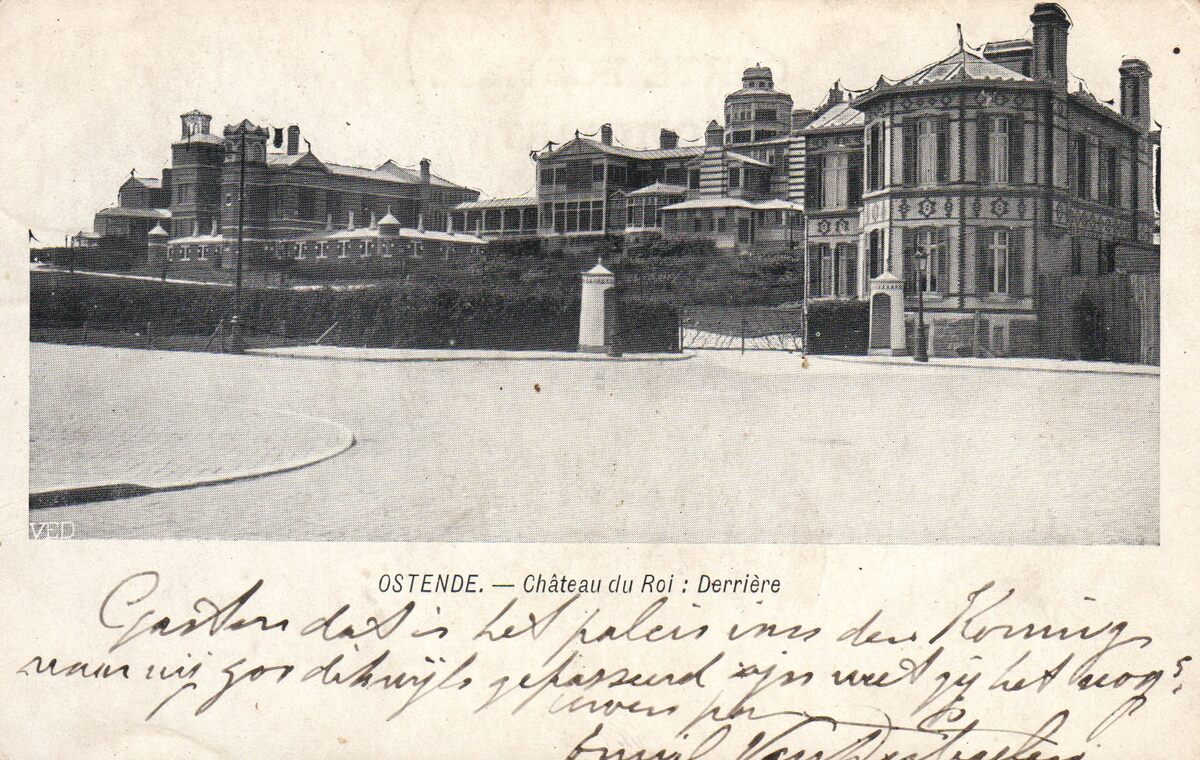 VED
OSTENDE. — Château du Roi : Derrière
Gaston dat is het paleis van den Koning
waar wij zoo dikwijls gepasseerd zijn weet gij het nog
Emiel Van